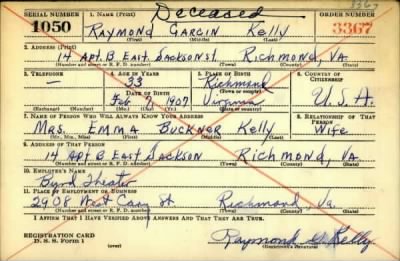 3367
Deceased
SERIAL NUMBER 1. NAME (Print) ORDER NUMBER
1050 RAYMOND GARGIN KELLY 3367
(First) (Middle) (Last)
2. ADDRESS (Print)
14 Apt. B EAST JACKSON ST RICHMOND, VA
(Number and street or R. F. D. number) (Town) (County) (State)
3. TELEPHONE 4. AGE IN YEARS 5. PLACE OF BIRTH 6. COUNTRY OF CITIZENSHIP
— 33 Richmond
DATE OF BIRTH (Town or county)
Feb 1907 Virginia U.S.A.
(Exchange) (Number) (Mo.) (Day) (Yr.) (State or country)
7. NAME OF PERSON WHO WILL ALWAYS KNOW YOUR ADDRESS 8. RELATIONSHIP OF THAT PERSON
MRS. EMMA BUCKNER KELLY Wife
(Mr., Mrs., Miss) (First) (Middle) (Last)
9. ADDRESS OF THAT PERSON
14 Apt B EAST JACKSON RICHMOND, VA
(Number and street or R. F. D. number) (Town) (County) (State)
10. EMPLOYER'S NAME
Byrd Theater
11. PLACE OF EMPLOYMENT OR BUSINESS
2908 West Cary St Richmond, Va.
(Number and street or R. F. D. number) (Town) (County) (State)
I AFFIRM THAT I HAVE VERIFIED ABOVE ANSWERS AND THAT THEY ARE TRUE.
REGISTRATION CARD
D. S. S. Form 1 Raymond G. Kelly
(Registrant's signature)